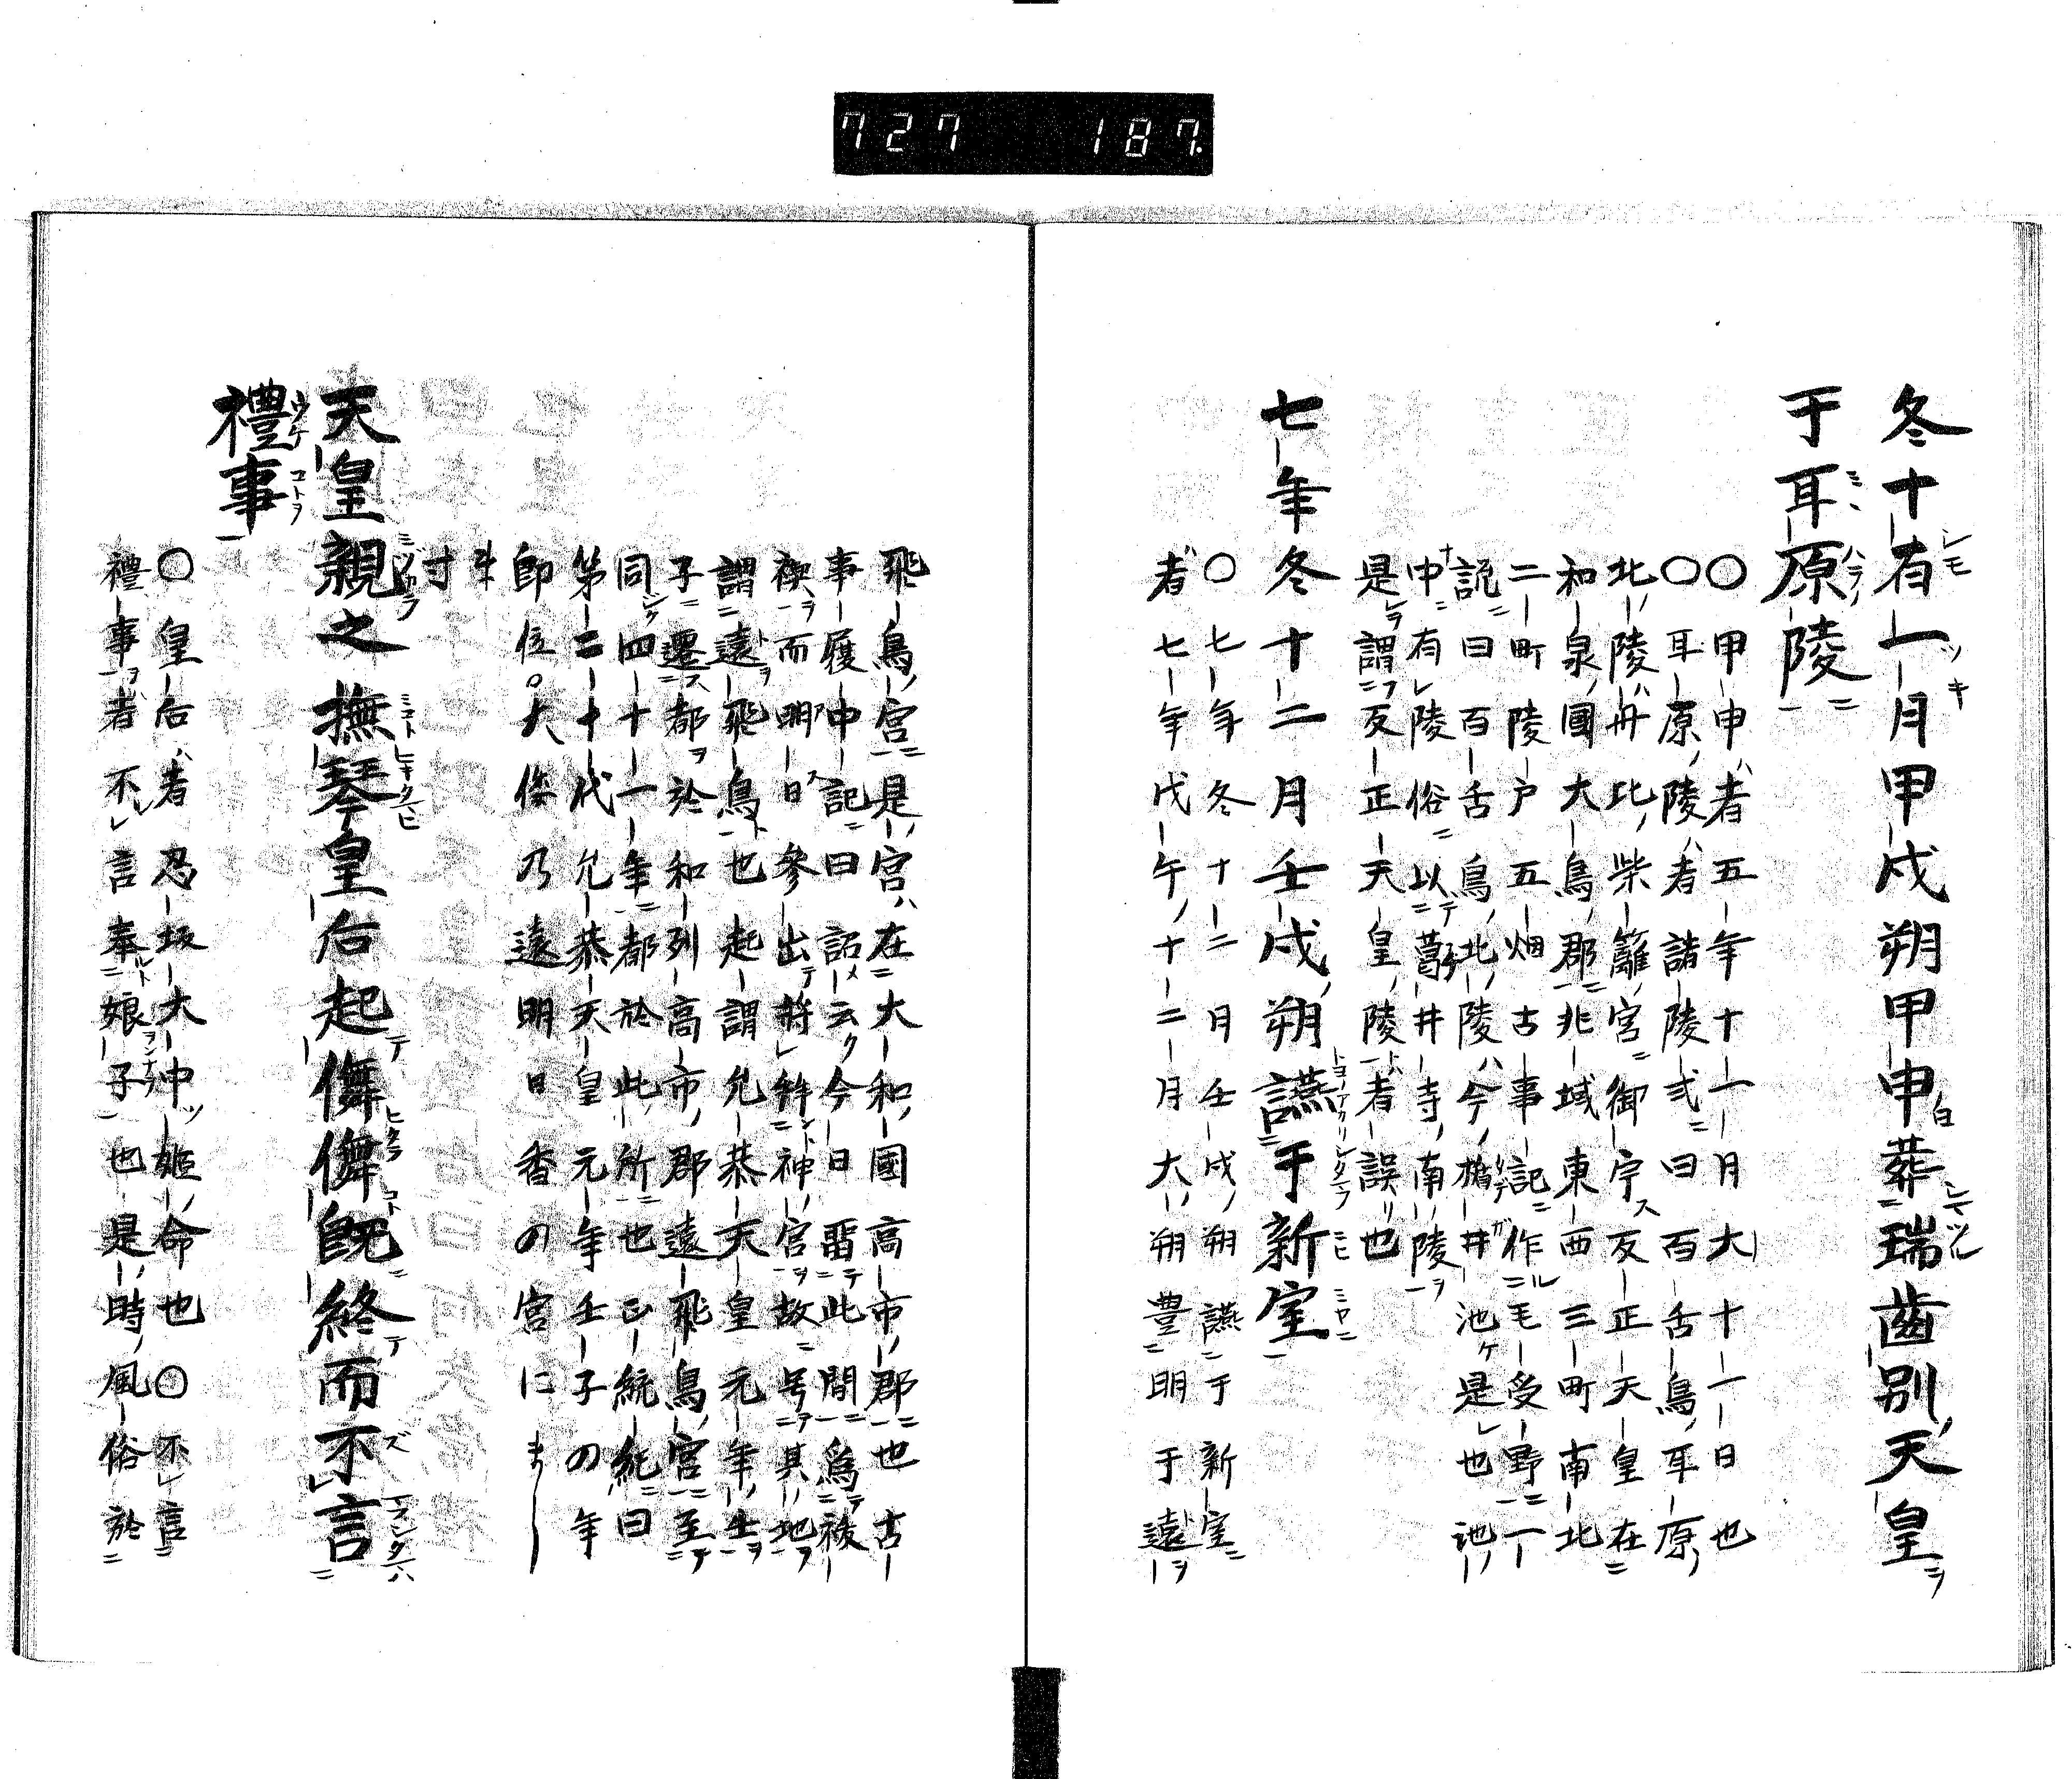 727 187
冬十有一月甲戌朔甲申葬瑞齒別天皇
于耳原陵
〇甲申者五年十一月大十一日也
〇耳原陵者諸陵式曰百舌鳥耳原
北陵丹比柴籬宮御宇反正天皇在
和泉國大鳥郡兆域東西三町南北
二町陵戸五烟古事記作毛受野一
説曰百舌鳥北陵今楯井池是也池
中有陵俗以葛井寺南陵
是謂反正天皇陵者誤也
七年冬十二月壬戌朔讌于新室
〇七年冬十二月壬戌朔讌于新室
者七年戊午十二月大朔豊明于遠
飛鳥宮是宮在大和國高市郡也古
事履中記曰詔云今日留此間爲祓
禊而明日參出將拜神宮故号其地
謂遠飛鳥也起謂允恭天皇元年壬
子遷都於和列高市郡遠飛鳥宮至
同四十一年都於此所也正統紀曰
第二十代允恭天皇元年壬子の年
即位大倭乃遠明日香の宮に
天皇親之撫琴皇后起儛儛既終而不言
禮事
〇皇后者忍坂大中姫命也〇不言
禮事者不言奉娘子也是時風俗於